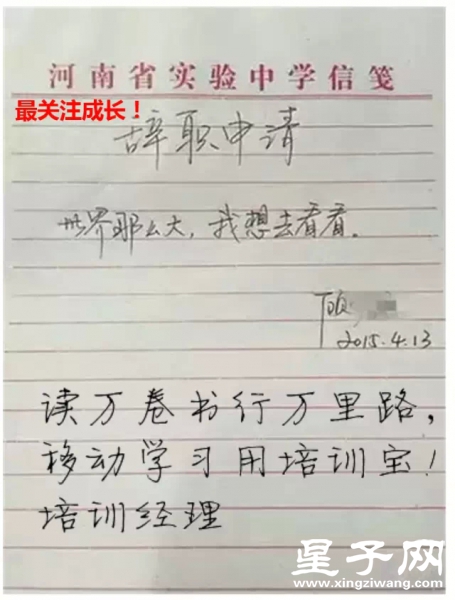 河南省实验中学信笺
最关注成长！
辞职申请
世界那么大，我想去看看。
顾
2015.4.13
读万卷书行万里路，
移动学习用培训宝！
培训经理
星子网
www.xingziwang.com